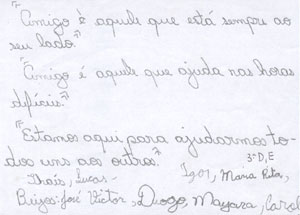 "Amigo é aquele que está sempre ao
seu lado."
"Amigo é aquele que ajuda nas horas
difíceis."
"Estamos aqui para ajudarmos to-
dos uns aos outros."
3ª D, E
Thaís, Lucas - Igor, Maria Rita,
José Victor, Diogo, Mayara, Carol